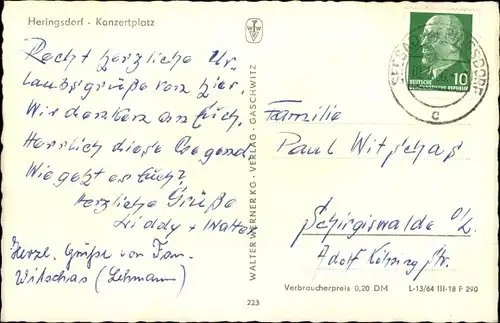 Heringsdorf - Konzertplatz
Recht herzliche Ur-
laubsgrüße von hier.
Wir denken an Euch.
Herrlich diese Gegend
Wie geht es Euch?
Herzliche Grüße
Liddy + Walter
Herzl. Grüße von Fam.
Witschas (Lehmann)
WALTER WERNER KG · VERLAG · GASCHWITZ
223
SEEBAD HERINGSDORF
c
10
DEUTSCHE
DEMOKRATISCHE REPUBLIK
Familie
Paul Witschas
Schirgiswalde O/L.
Adolf Kolping Str.
Verbraucherpreis 0,20 DM
L-13/64 III-18 F 290